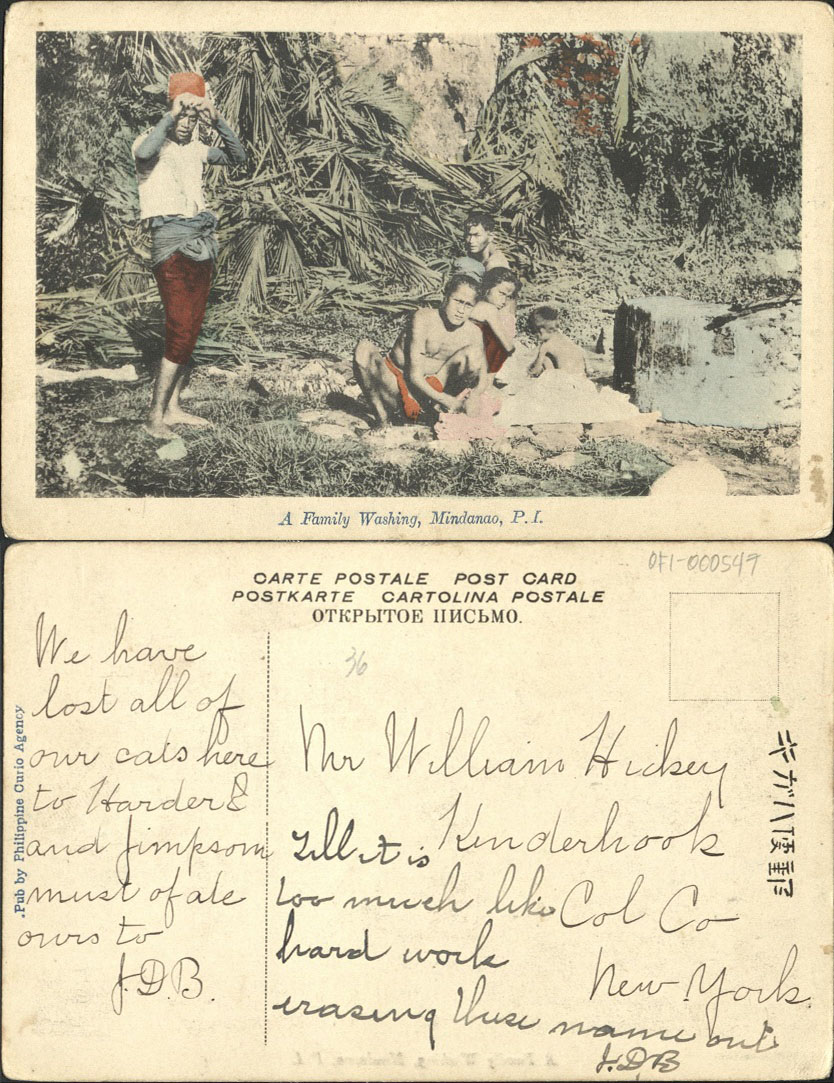 A Family Washing, Mindanao, P. I.
OF1-000547
CARTE POSTALE POST CARD
POSTKARTE CARTOLINA POSTALE
ОТКРЫТОЕ ПИСЬМО.
36
Pub by Philippine Curio Agency
We have
lost all of
our cats here
to Harder &
and Jimpsom
must of ate
ours to
J.D.B.
Mr William Hickey
Kinderhook
Col Co
New York
it is
too much like
hard work
erasing these name out
J.D.B